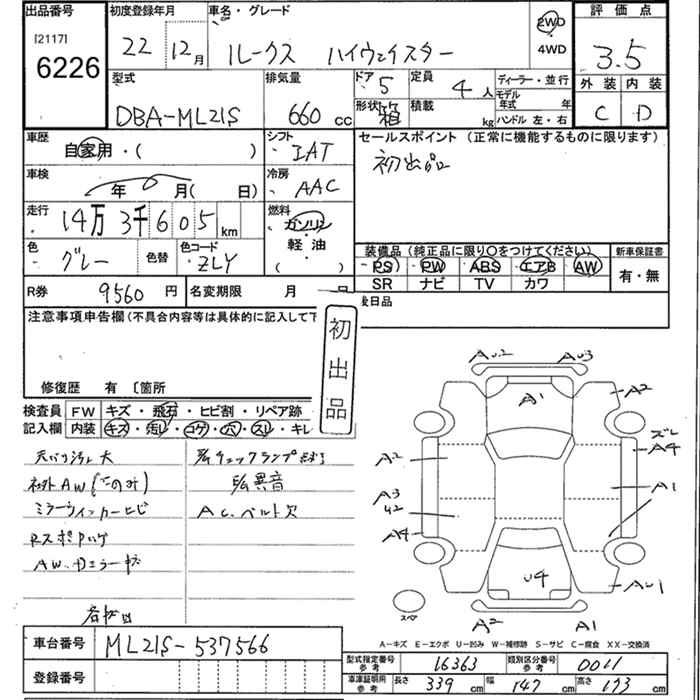 出品番号 初度登録年月 車名・グレード 2WD 評価点
[2117] 22年 12月 ルークス ハイウェイスター 4WD 3.5
6226
型式 排気量 ドア 5 定員 4人 ディーラー・並行 外装 内装
DBA-ML21S 660cc 形状 箱 積載 kg モデル年式 年 C D
ハンドル 左・右
車歴 シフト セールスポイント (正常に機能するものに限ります)
自家用・( ) IAT 初出品
車検 年 0 月( 日) 冷房 AAC
走行 14万3千605km 燃料 ガソリン
軽油
( )
色 グレー 色替 色コード ZLY
装備品(純正品に限り○をつけてください) 新車保証書
PS PW ABS エアB AW 有・無
SR ナビ TV カワ
R券 9560円 名変期限 月 日
注意事項申告欄(不具合内容等は具体的に記入して下
扱日品
初出品
修復歴 有 〔箇所
検査員 FW キズ・飛石・ヒビ割・リペア跡
記入欄 内装 キズ・汚レ・コゲ・穴・スレ・キレ
天バリ汚レ大
社外AW
ミラーウィンカーヒビ
AW
異音
AC.ベルト欠
A・2 A・3
A1 A2
ズレ
A4
A2
A3 A1
U2
A4
U4 A・U1
スペア
A2 A1
A-キズ E-エクボ U-凹み W-補修跡 S-サビ C-腐食 XX-交換済
車台番号 ML21S-537566
登録番号
型式指定番号 参考 16363 類別区分番号 参考 0011
車庫証明用 参考 長さ 339cm 幅 147cm 高さ 173cm